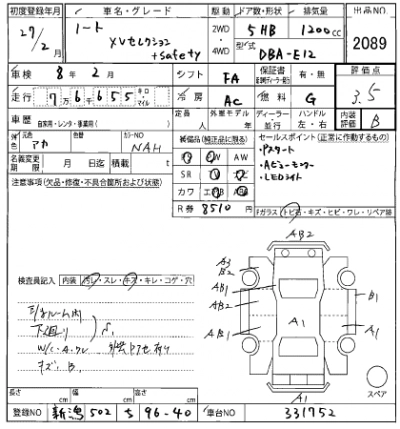 初度登録年月 車名・グレード 駆動 ドア数・形状 排気量 出品NO
27/2月 ノート XVセレクション +safety 2WD・4WD 5HB 1200cc 2089
型式 DBA-E12
車検 8年2月 シフト FA 保証書 有・無 評価点 3.5
走行 7万6655 キロ・マイル 冷房 AC 燃料 G 内装評価 B
車歴 自家用・レンタ・事業用( ) 定員 人 外車モデル 年 ディーラー 並行 ハンドル 左・右
外色 元色 アカ 色替 カラーNO NAH
装備品(純正品に限る) セールスポイント(正常に作動するもの)
名義変更期限 月 日迄 積載 t
SR ナビ TV AW
カワ エアB ABS
R券 8510円
・Pスタート
・Aビューモニター
・LEDライト
注意事項(欠品・修復・不具合箇所および状態)
Fガラス(トビ石・キズ・ヒビ・ワレ・リペア跡)
検査員記入 内装(汚レ・スレ・キズ・キレ・コゲ・穴)
下廻り
キズ. B.
AB2
A3
B2
AB1
AB2
AB1
A1
B1
A1
A1
スペア
長さ cm 幅 cm 高さ cm
登録NO 新潟 502 ち 96-40 車台NO 331752